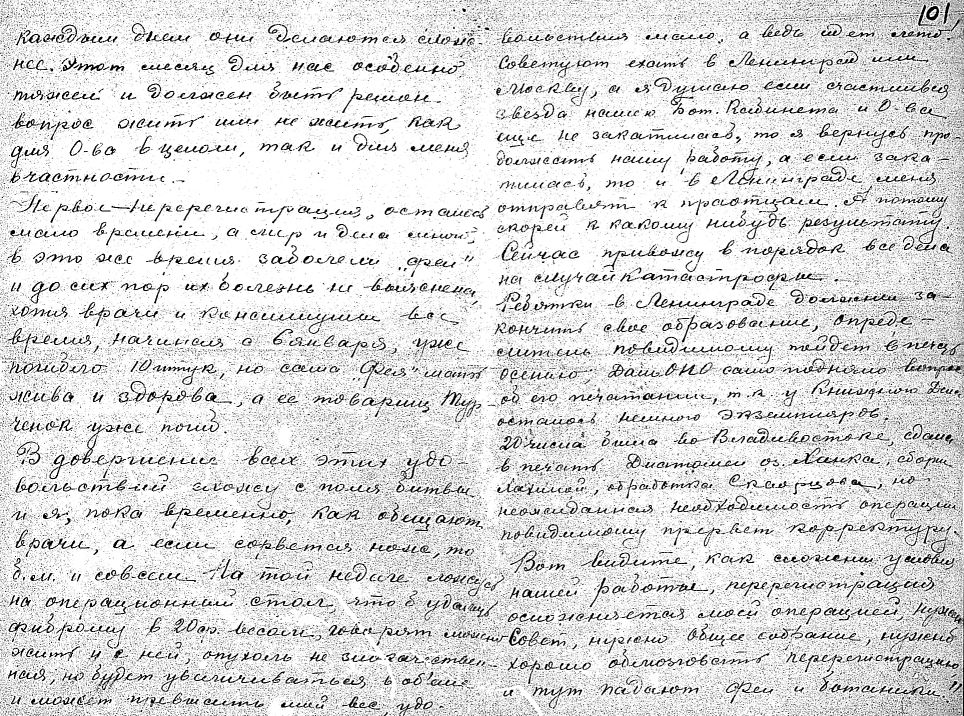 101
каждым днем они делаются слож-
нее. Этот месяц для нас особенно
тяжел и должен быть решен
вопрос жить или не жить, как
для О-ва в целом, так и для меня
в частности.-
Первое - перерегистрация, осталось
мало времени, а дела много,
в это же время заболели "феи"
и до сих пор их болезнь не выяснена,
хотя врачи и консилиумы все
время, начиная с 6 января, уже
погибло 10 штук, но сама "Фея" мать
жива и здорова, а ее товарищ Тур-
ченок уже погиб.
В довершение всех этих удо-
вольствий схожу с поля битвы
и я, пока временно, как обещают
врачи, а если сорвется нож, то
б.м. и совсем. На той неделе ложусь
на операционный стол, чтоб удалить
фиброму в 20ф. весом, говорят можно
жить и с ней, опухоль не злокачествен-
ная, но будет увеличиваться в об'еме
и может превысить мой вес, удо-
вольствия мало, а ведь идет лето.
Советуют ехать в Ленинград или
Москву, а я думаю если счастливая
звезда нашего Бот. Кабинета и О-ва
еще не закатилась, то я вернусь про-
должать нашу работу, а если зака-
тилась, то и в Ленинграде меня
отправят к праотцам. А потому
скорей к какому нибудь результату.
Сейчас привожу в порядок все дела
на случай катастрофы.
Ребятки в Ленинграде должны за-
кончить свое образование, опреде-
литель повидимому пойдет в печать
осенью, ДальОНО само подняло вопрос
об его печатании, т.к. у Книжного Дела
осталось немного экземпляров.
20 числа была во Владивостоке, сдала
в печать Диатомеи оз. Ханка, сборы
обработка Скворцова, но
неожиданная необходимость операции
повидимому прервет корректуру.
Вот видите, как сложны условия
нашей работы, перерегистрация
осложняется моей операцией, нужен
Совет, нужно общее собрание, нужно
хорошо обмозговать перерегистрацию
и тут падают феи и ботаники!!